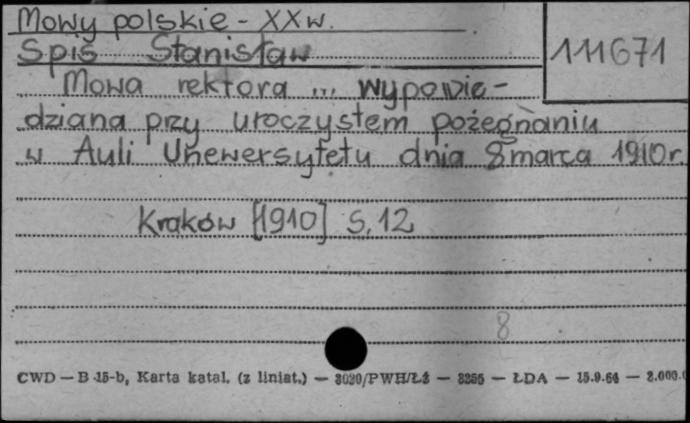 Mowy polskie - XX w.
Spis Stanisław
111671
Mowa rektora ... wypowie-
dziana przy uroczystem pożegnaniu
w Auli Unewersytetu dnia 8 marca 1910 r.
Kraków [1910] S. 12
8
CWD — B 15-b, Karta katal. (z liniat.) — 3030/PWH/Łź — 3255 — ŁDA — 15.9.64 — 2.000.0